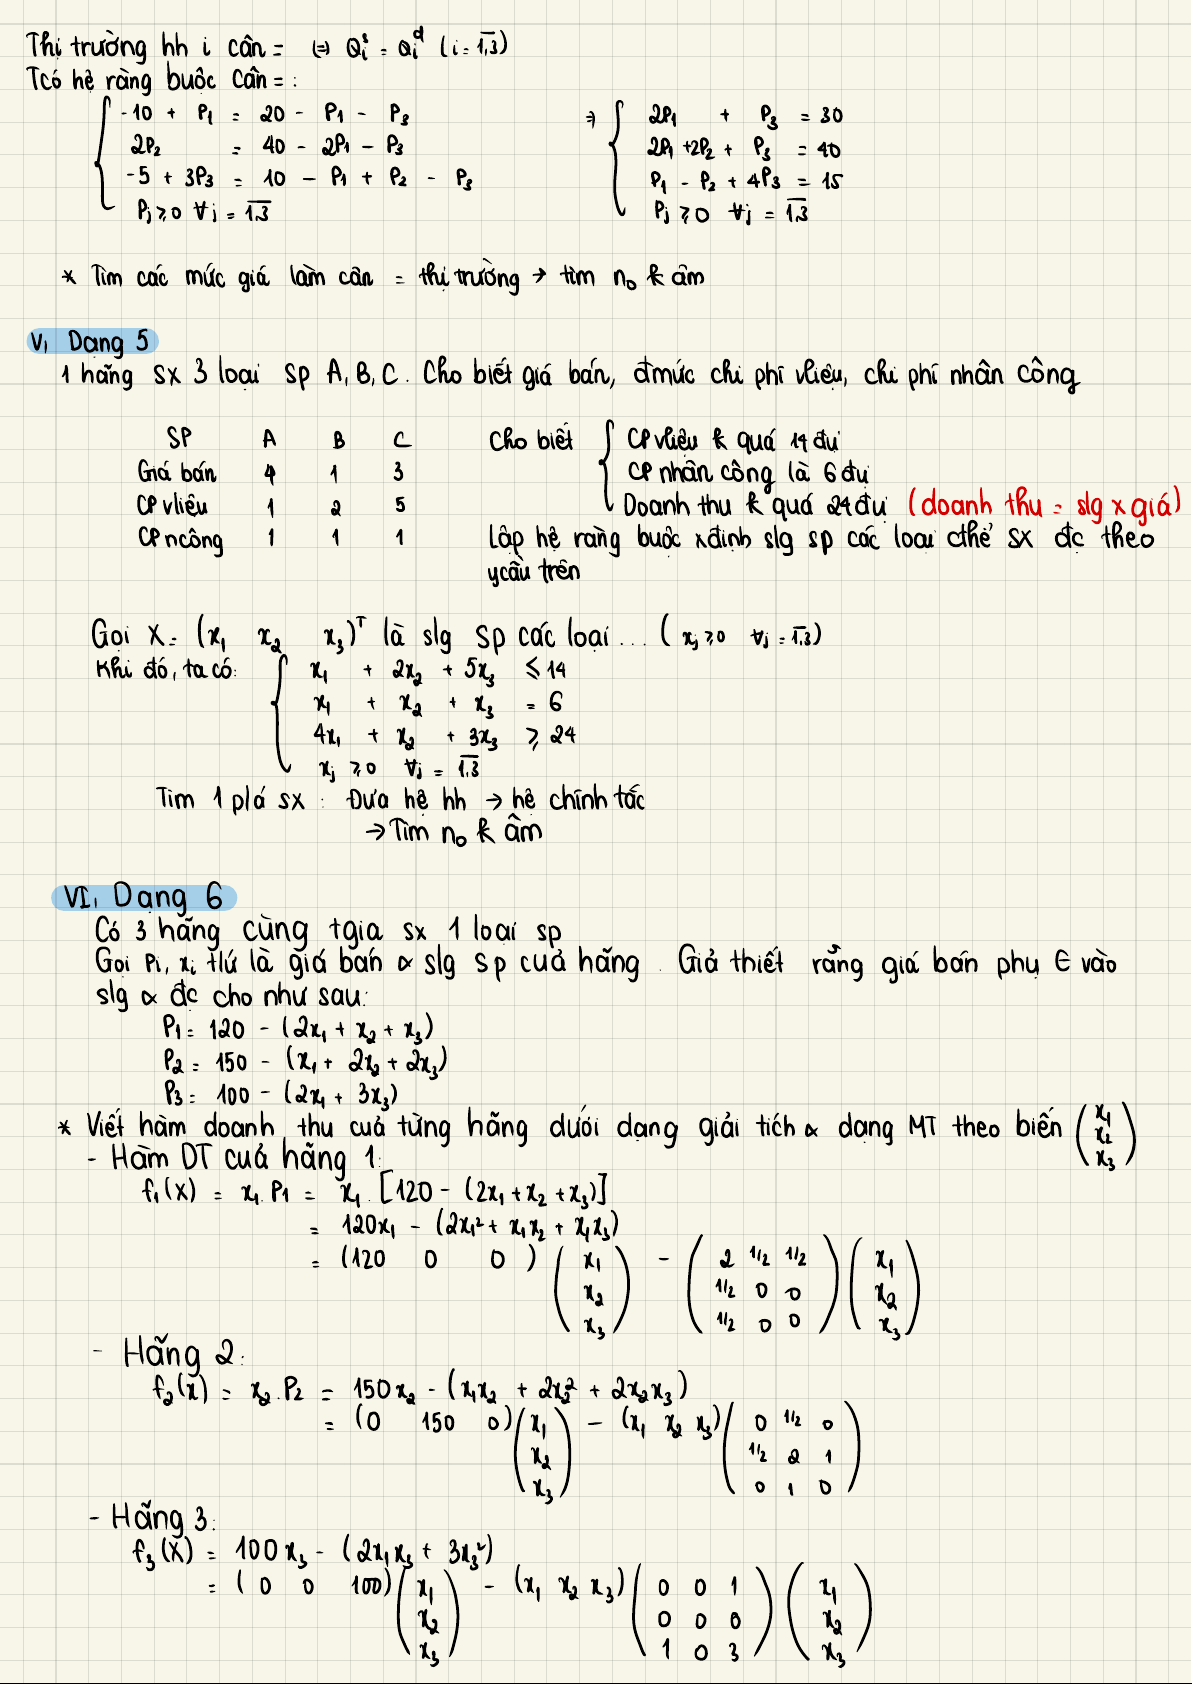 Thị trường hh i cân = ⇔ Qᵢˢ = Qᵢᵈ (i = 1,3)
Tcó hệ ràng buộc cân = :
-10 + P₁ = 20 - P₁ - P₃ ⇒ 2P₁ + P₃ = 30
2P₂ = 40 - 2P₁ - P₃ 2P₁ + 2P₂ + P₃ = 40
-5 + 3P₃ = 10 - P₁ + P₂ - P₃ P₁ - P₂ + 4P₃ = 15
Pj ≥ 0 ∀j = 1,3 Pj ≥ 0 ∀j = 1,3
* Tìm các mức giá làm cân = thị trường → tìm n₀ k âm
V, Dạng 5
1 hãng sx 3 loại sp A, B, C. Cho biết giá bán, đmức chi phí vliệu, chi phí nhân công
SP A B C Cho biết CP vliệu k quá 14 đv
Giá bán 4 1 3 CP nhân công là 6 đv
CP vliệu 1 2 5 Doanh thu k quá 24 đv (doanh thu = slg x giá)
CP ncông 1 1 1 Lập hệ ràng buộc xđịnh slg sp các loại cthể sx đc theo
ycầu trên
Gọi X = (x₁ x₂ x₃)ᵀ là slg sp các loại... (xj ≥ 0 ∀j = 1,3)
Khi đó, ta có: x₁ + 2x₂ + 5x₃ ≤ 14
x₁ + x₂ + x₃ = 6
4x₁ + x₂ + 3x₃ ≥ 24
xj ≥ 0 ∀j = 1,3
Tìm 1 p/á sx : Đưa hệ hh → hệ chính tắc
→ Tìm n₀ k âm
VI, Dạng 6
Có 3 hãng cùng tgia sx 1 loại sp
Gọi Pi, xi tlứ là giá bán & slg sp cuả hãng. Giả thiết rằng giá bán phụ ∈ vào
slg & đc cho như sau:
P₁ = 120 - (2x₁ + x₂ + x₃)
P₂ = 150 - (x₁ + 2x₂ + 2x₃)
P₃ = 100 - (2x₁ + 3x₃)
* Viết hàm doanh thu cuả từng hãng dưới dạng giải tích & dạng MT theo biến (x₁ x₂ x₃)
- Hàm DT cuả hãng 1:
f₁(X) = x₁.P₁ = x₁.[120 - (2x₁ + x₂ + x₃)]
= 120x₁ - (2x₁² + x₁x₂ + x₁x₃)
= (120 0 0) (x₁ - (2 1/2 1/2) (x₁
x₂ 1/2 0 0 x₂
x₃) 1/2 0 0) x₃)
- Hãng 2:
f₂(x) = x₂.P₂ = 150x₂ - (x₁x₂ + 2x₂² + 2x₂x₃)
= (0 150 0) (x₁ - (x₁ x₂ x₃) (0 1/2 0
x₂ 1/2 2 1
x₃) 0 1 0)
- Hãng 3:
f₃(X) = 100x₃ - (2x₁x₃ + 3x₃²)
= (0 0 100) (x₁ - (x₁ x₂ x₃) (0 0 1) (x₁
x₂ 0 0 0 x₂
x₃) 1 0 3) x₃)